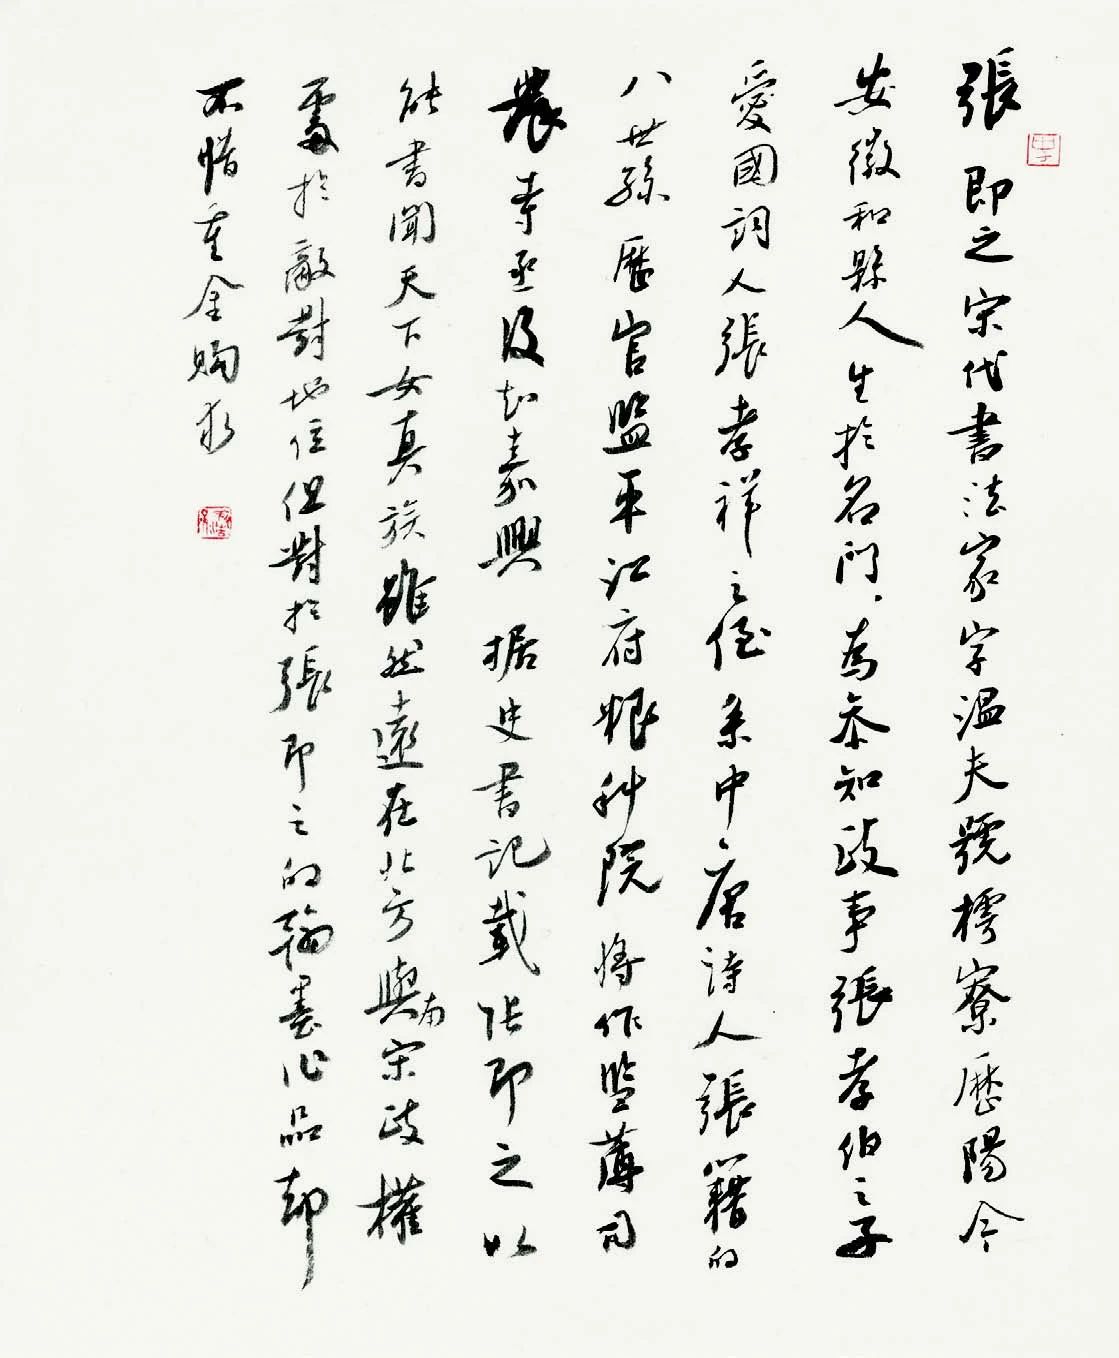 張即之宋代書法家字温夫號樗寮歷陽今
安徽和縣人生於名門為参知政事張孝伯之子
愛國詞人張孝祥之侄系中唐詩人張籍的
八世孫歷官監平江府粮科院將作監薄司
農寺丞後知嘉興據史書記載張即之以
能書聞天下女真族雖然遠在北方與南宋政權
處於敵對地位但對於張即之的翰墨作品却
不惜重金購求